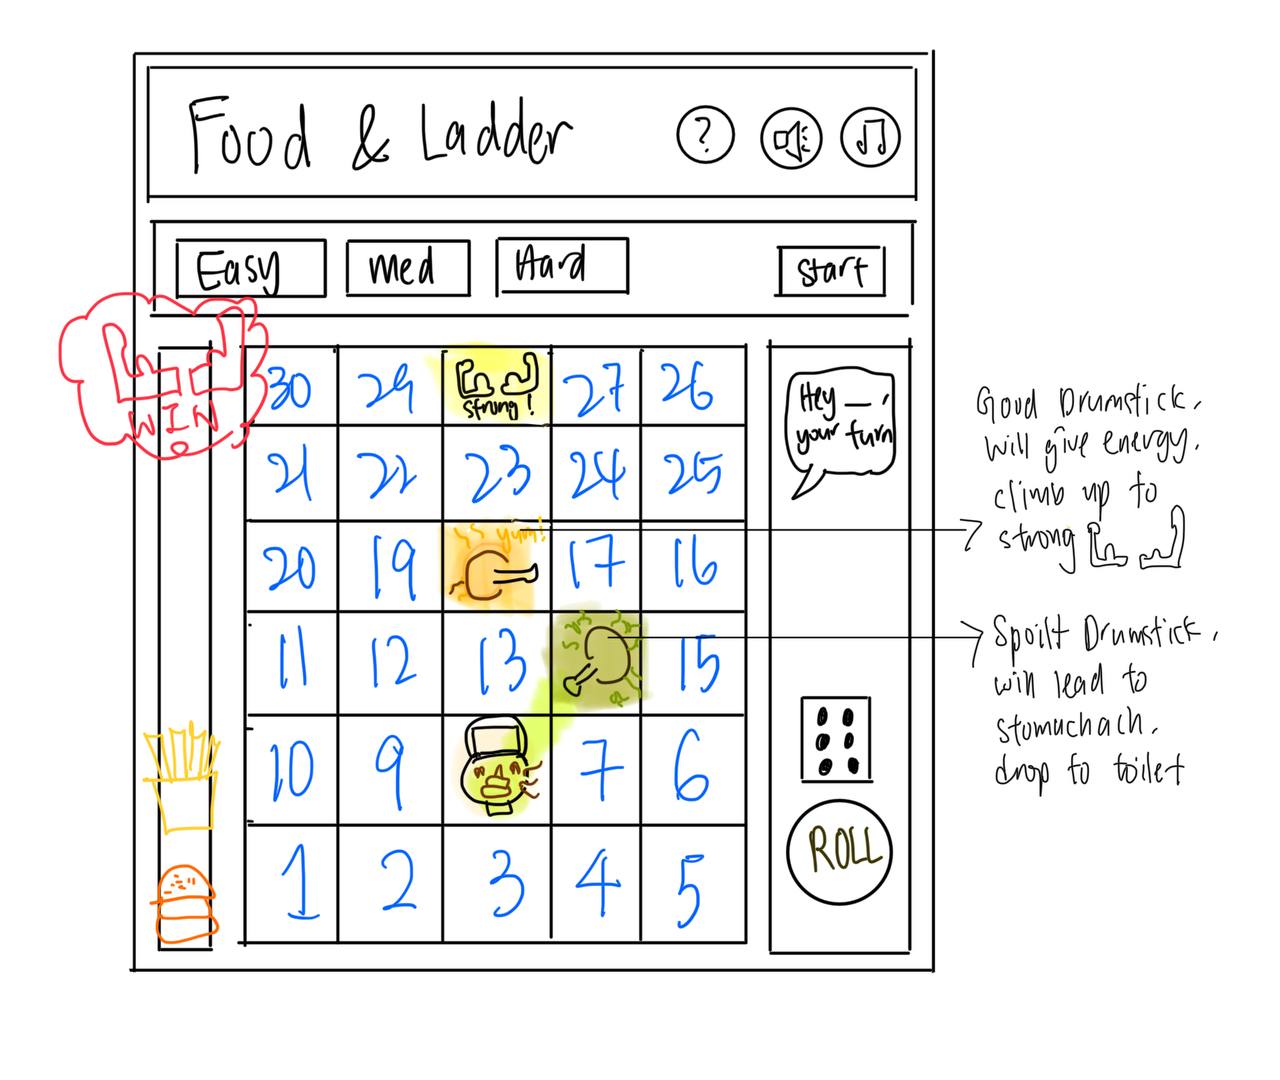 Food & Ladder ?
Easy Med Hard Start
WIN
30 29 strong! 27 26
Hey __,
your turn
21 22 23 24 25
20 19 yum! 17 16
11 12 13 15
10 9 7 6
1 2 3 4 5
ROLL
Good Drumstick,
will give energy.
climb up to
strong
Spoilt Drumstick,
will lead to
stomuchach.
drop to toilet